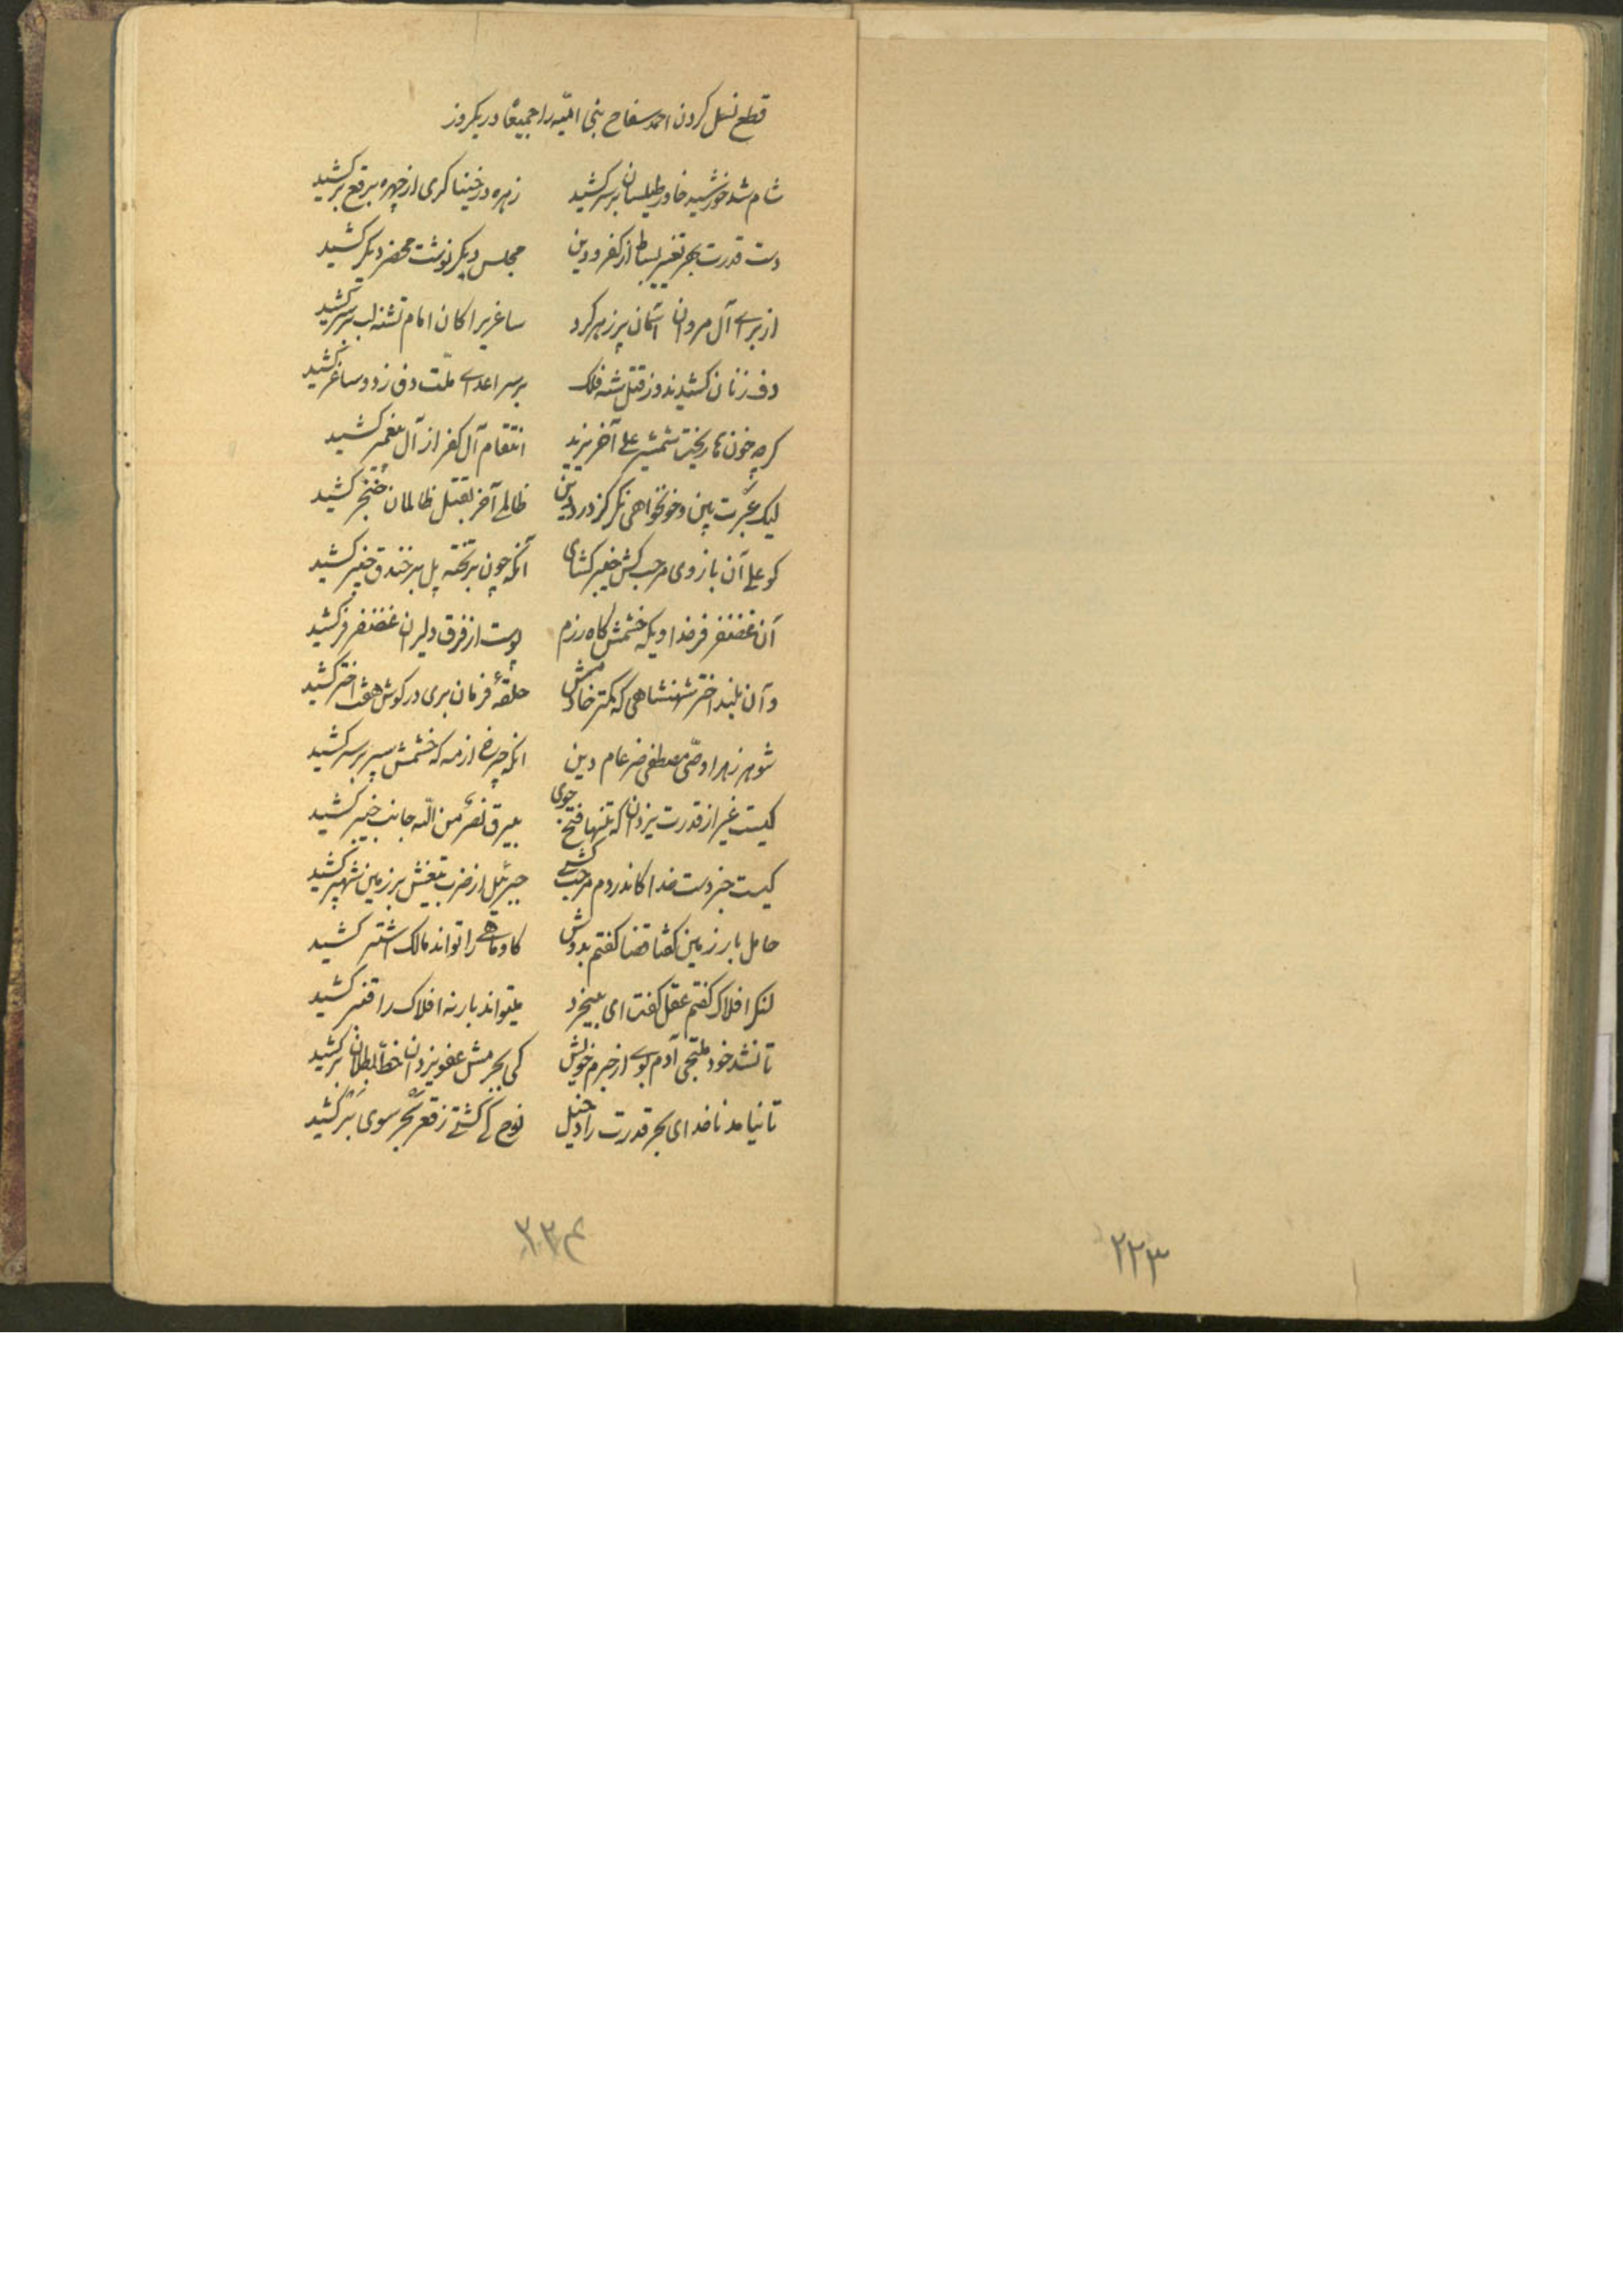 قطع نسل کردن احمد سفاح بنی امیّه را جمیعًا در یکروز
شام شد خورشید خاور طیلسان بر سر کشید زهره در خنیاکری از چهره برقع بر کشید
دست قدرت بهر تغییر بساط از کفر و دین مجلس دیکر نوشت محضر دیکر کشید
از برای آل مروان آسمان پر زهر کرد ساغریرا کان امام تشنه لب بر سر کشید
دف زنان کشیدند و ز قتل شه فلک بر سر اعدای ملّت دف زد و ساغر کشید
کرچه خون ریخت شمشیر علی آخر یزید انتقام آل کفر از آل پیغمبر کشید
لیک عبرت بین و خونخواهی نکر کز درد دین ظالمی آخر بقتل ظالمان خنجر کشید
کو علی آن بازوی مرحب کش خیبر کشای آنکه چون بر تخته پل بر خندق خیبر کشید
آن غضنفر فر خداویکه خشمش کاه رزم پوست از فرق دلیران غضنفر فر کشید
وآن بلند اختر شهنشاهی که کمتر خادمش حلقهٔ فرمان بری در کوش هفت اختر کشید
شوهر زهرا وصّی مصطفی ضرغام دین انکه چرخ از مه که خشمش سپر بر سر کشید
کیست غیر از قدرت یزدان که تنها فتح جوی بیرق نصرٌ من اللّه جانب خیبر کشید
کیست جز دست خدا کاندر دم مرحب کشی جبرئیل از ضرب تیغش بر زمین شهپر کشید
حامل بار زمین کفتا قضا کفتم بدوش کاو و ماهی را تواند مالک اشتر کشید
لنکر افلاک کفتم عقل کفت ای بیخرد میتواند بار نه افلاک را قنبر کشید
تا نشد خود ملتجی آدم بوی از جرم خویش کی بجرمش عفو یزدان خط بطلان بر کشید
تا نیامد ناخدای بحر قدرت را دخیل نوح کی کشتی ز قعر بحر سوی بَر کشید
۲۲۴
۲۲۳